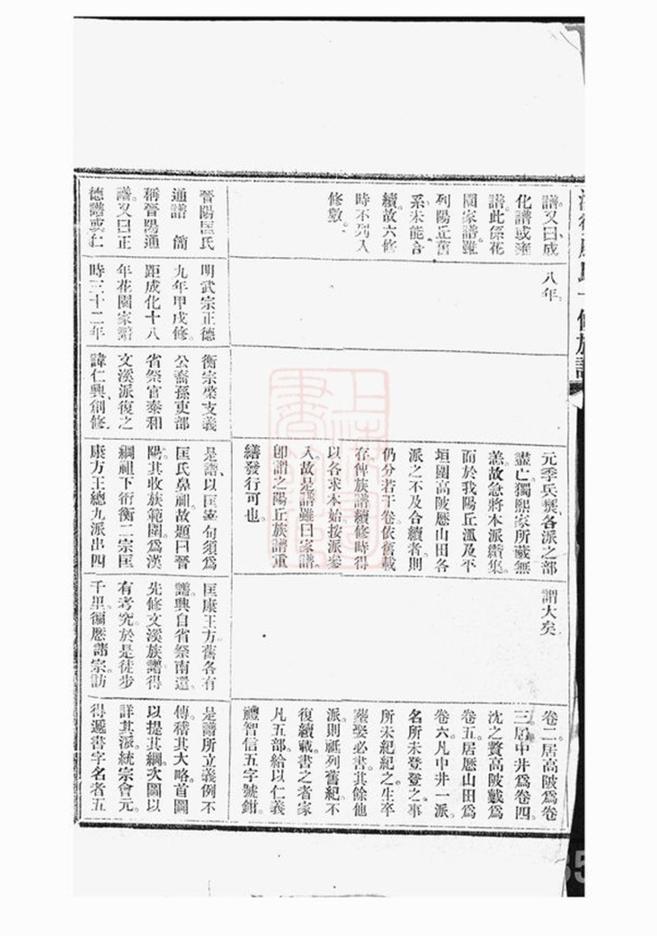 族譜
譜又曰成
化譜或雍
譜此係花
園家譜雖
列陽丘舊
系未能合
續故六修
時不列入
修數
八年
元季兵燹各派之部
盡亡獨熙家所藏無
恙故急將本派儹集
而於我陽丘溫及平
垣園高陂歷山田各
派之不及合續者則
仍分若干卷依舊載
存俾族譜續修時得
以各求本始按派參
入故是譜雖曰家譜
卽謂之陽丘族譜重
繕發行可也
謂大矣
卷二居高陂爲卷
三居中井爲卷四
沈之贅高陂戴爲
卷五居歷山田爲
卷六凡中井一派
名所未登登之事
所未紀紀之生卒
塟娶必書其餘他
派則祇列舊紀不
復續載書之者家
凡五部給以仁義
禮智信五字號鉗
晉陽匡氏
通譜 簡
稱晉陽通
譜又曰正
德譜或仁
明武宗正德
九年甲戌修
距成化十八
年花園家譜
時三十二年
衡宗榮支義
公裔孫吏部
省祭官泰和
文溪派復之
諱仁興創修
是譜以匡句須爲
匡氏鼻祖故題曰晉
陽其收族範圍爲漢
綱祖下衎衡二宗匡
康方王總九派出四
匡康王方舊各有
譜興自省祭南還
先修文溪族譜得
有考究於是徒步
千里徧歷諸宗訪
是譜所立義例不
傳稽其大略首圖
以提其綱次圖以
詳其派統宗會元
得遞書字名者五